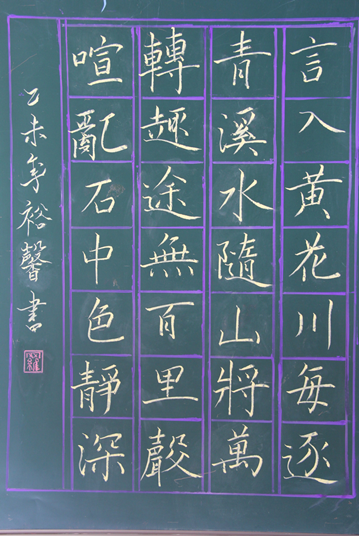 言入黄花川每逐
青溪水隨山將萬
轉趣途無百里聲
喧亂石中色靜深
乙未年裕馨書